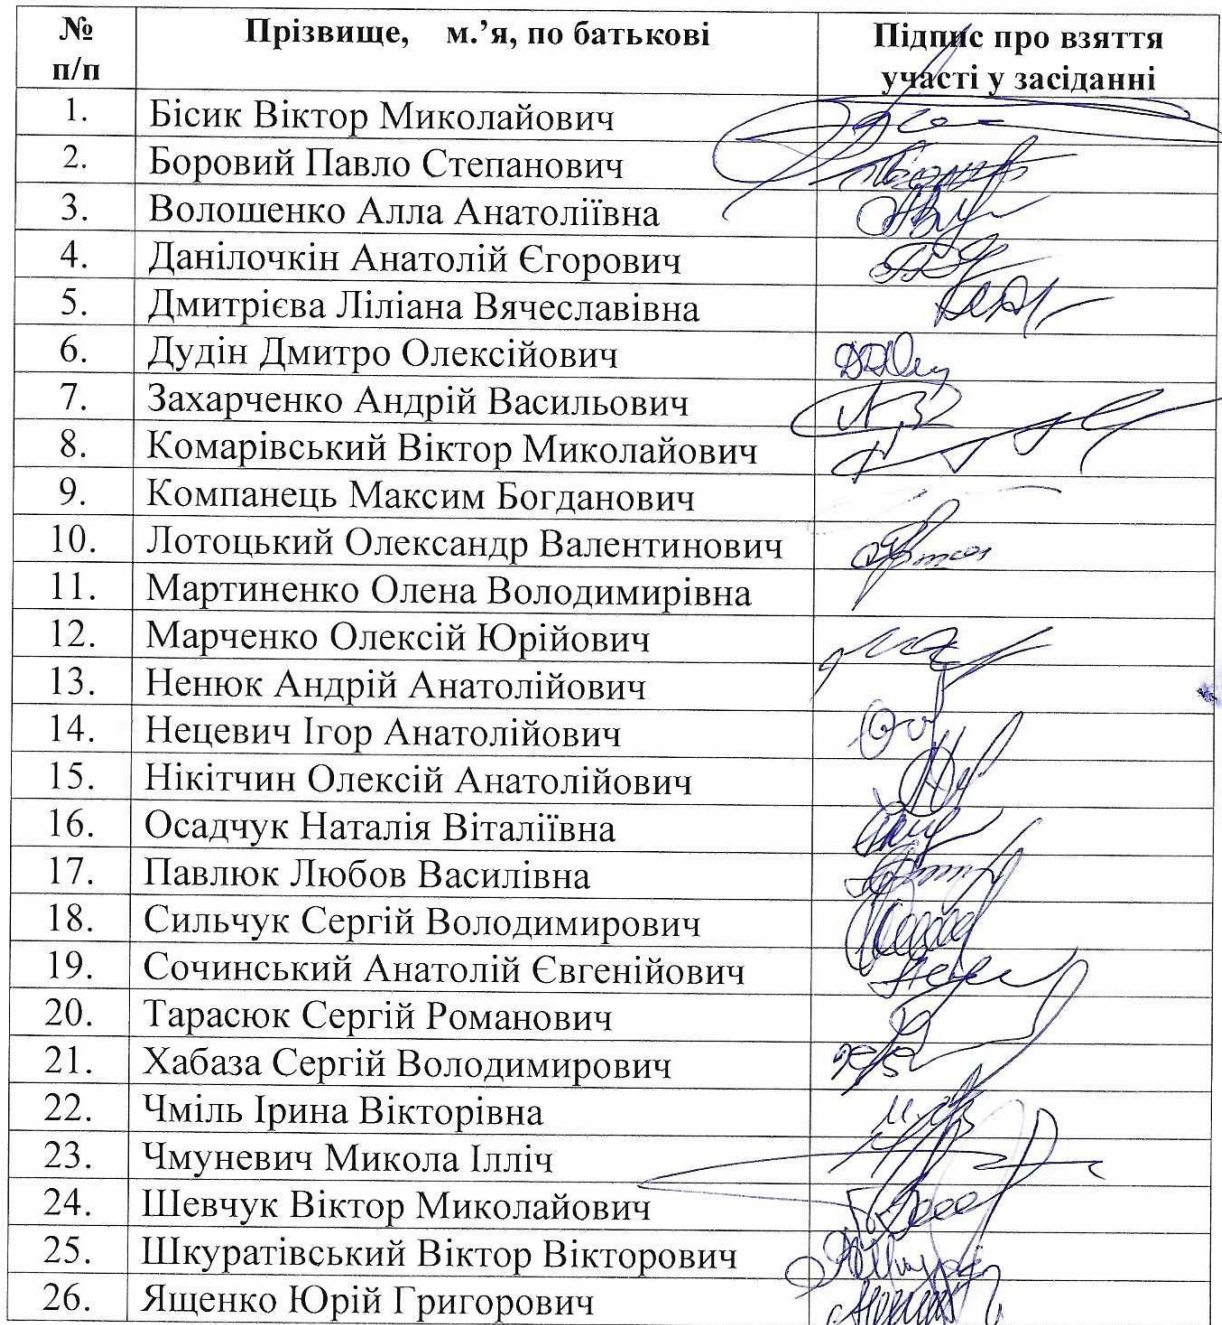 № п/п Прізвище, м.’я, по батькові Підпис про взяття участі у засіданні
1. Бісик Віктор Миколайович
2. Боровий Павло Степанович
3. Волошенко Алла Анатоліївна
4. Данілочкін Анатолій Єгорович
5. Дмитрієва Ліліана Вячеславівна
6. Дудін Дмитро Олексійович
7. Захарченко Андрій Васильович
8. Комарівський Віктор Миколайович
9. Компанець Максим Богданович
10. Лотоцький Олександр Валентинович
11. Мартиненко Олена Володимирівна
12. Марченко Олексій Юрійович
13. Ненюк Андрій Анатолійович
14. Нецевич Ігор Анатолійович
15. Нікітчин Олексій Анатолійович
16. Осадчук Наталія Віталіївна
17. Павлюк Любов Василівна
18. Сильчук Сергій Володимирович
19. Сочинський Анатолій Євгенійович
20. Тарасюк Сергій Романович
21. Хабаза Сергій Володимирович
22. Чміль Ірина Вікторівна
23. Чмуневич Микола Ілліч
24. Шевчук Віктор Миколайович
25. Шкуратівський Віктор Вікторович
26. Ященко Юрій Григорович